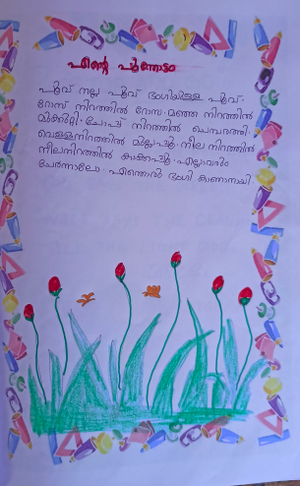 എന്റെ പൂന്തോട്ടം
പൂവ് നല്ല പൂവ് ഭംഗിയുള്ള പൂവ്.
റോസ് നിറത്തിൽ റോസ. മഞ്ഞ നിറത്തിൽ
നിറത്തിൽ ചെമ്പരത്തി.
വെള്ളനിറത്തിൽ മുല്ലപ്പൂ. നീല നിറത്തിൽ
നീലനിറത്തിൽ കാക്കപ്പൂ. എല്ലാവരും
ചേർന്നാലോ. എന്തൊരു ഭംഗി കാണാനായി.